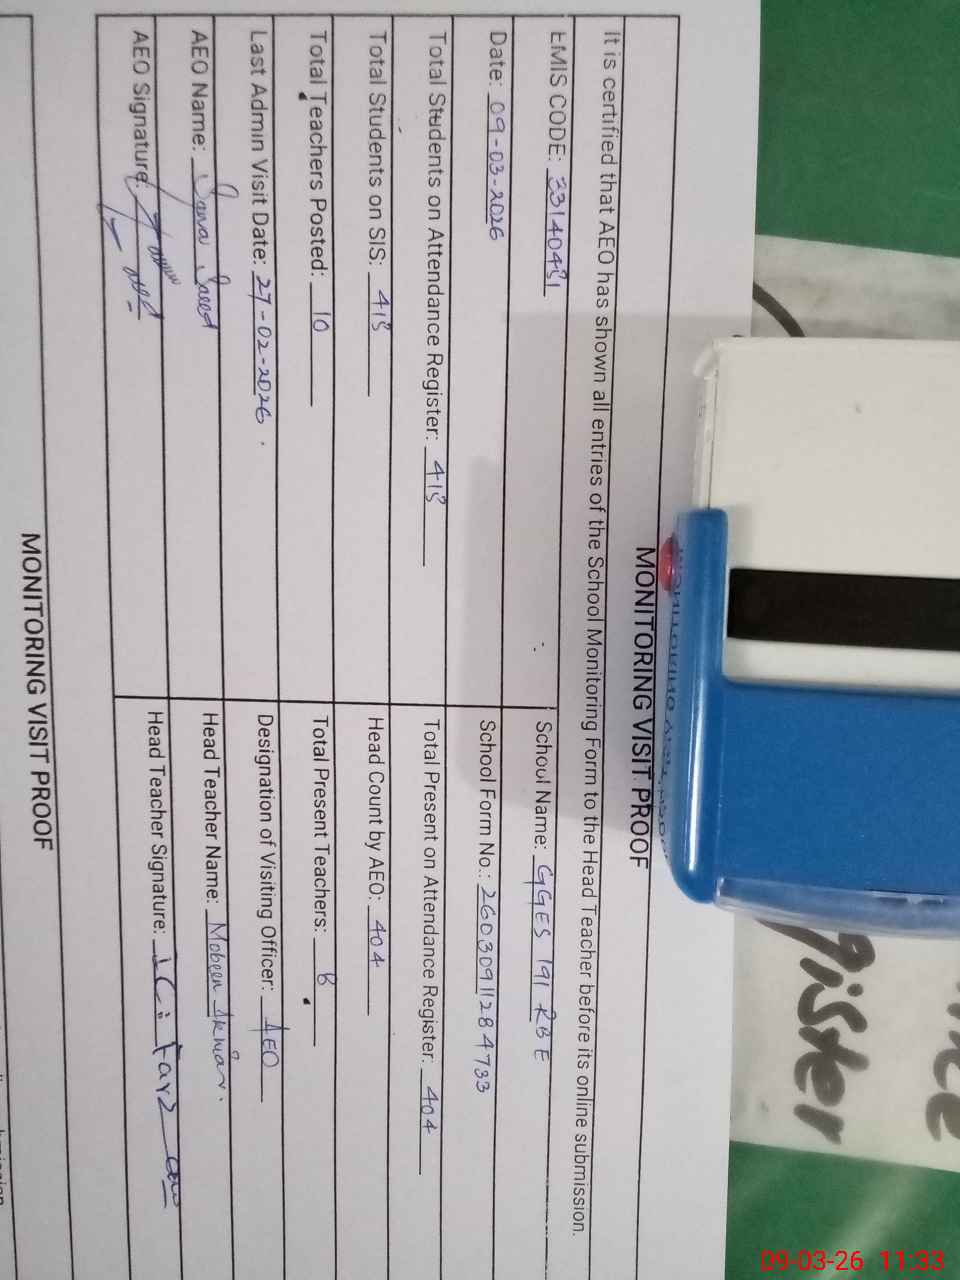 MONITORING VISIT PROOF
It is certified that AEO has shown all entries of the School Monitoring Form to the Head Teacher before its online submission.
EMIS CODE: 33140481 School Name: GGES 191 RB E
Date: 09-03-2026 School Form No.: 2603091128 4733
Total Students on Attendance Register: 418 Total Present on Attendance Register: 404
Total Students on SIS: 418 Head Count by AEO: 404
Total Teachers Posted: 10 Total Present Teachers: 8
Last Admin Visit Date: 27-02-2026. Designation of Visiting Officer: AEO
AEO Name: Sana Saeed Head Teacher Name: Mobeen Akhtar.
AEO Signature: Head Teacher Signature:
MONITORING VISIT PROOF
gister
09-03-26 11:33